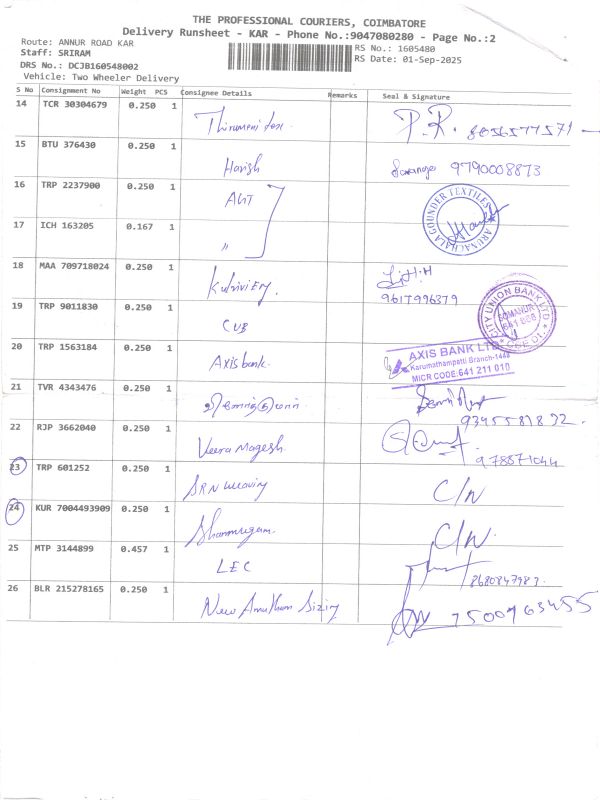 THE PROFESSIONAL COURIERS, COIMBATORE
Delivery Runsheet - KAR - Phone No.:9047080280 - Page No.:2
Route: ANNUR ROAD KAR
Staff: SRIRAM
RS No.: 1605480
DRS No.: DCJB160548002
RS Date: 01-Sep-2025
Vehicle: Two Wheeler Delivery
S No Consignment No Weight PCS Consignee Details Remarks Seal & Signature
14 TCR 30304679 0.250 1 P.R.
15 BTU 376430 0.250 1 Harish 9790008873
16 TRP 2237900 0.250 1
ARUNACHALA GOUNDER TEXTILES
17 ICH 163205 0.167 1 "
18 MAA 709718024 0.250 1
9617996379
19 TRP 9011830 0.250 1 CUB
CITY UNION BANK LTD
SOMANUR
641 668
20 TRP 1563184 0.250 1 Axis bank.
AXIS BANK LTD
Karumathampatti Branch-1448
MICR CODE:641 211 010
21 TVR 4343476 0.250 1
22 RJP 3662040 0.250 1 Veera Magesh
23 TRP 601252 0.250 1 SRN Weaving C/N
24 KUR 7004493909 0.250 1 Shanmugam C/N.
25 MTP 3144899 0.457 1 LEC
26 BLR 215278165 0.250 1 New 7500763455